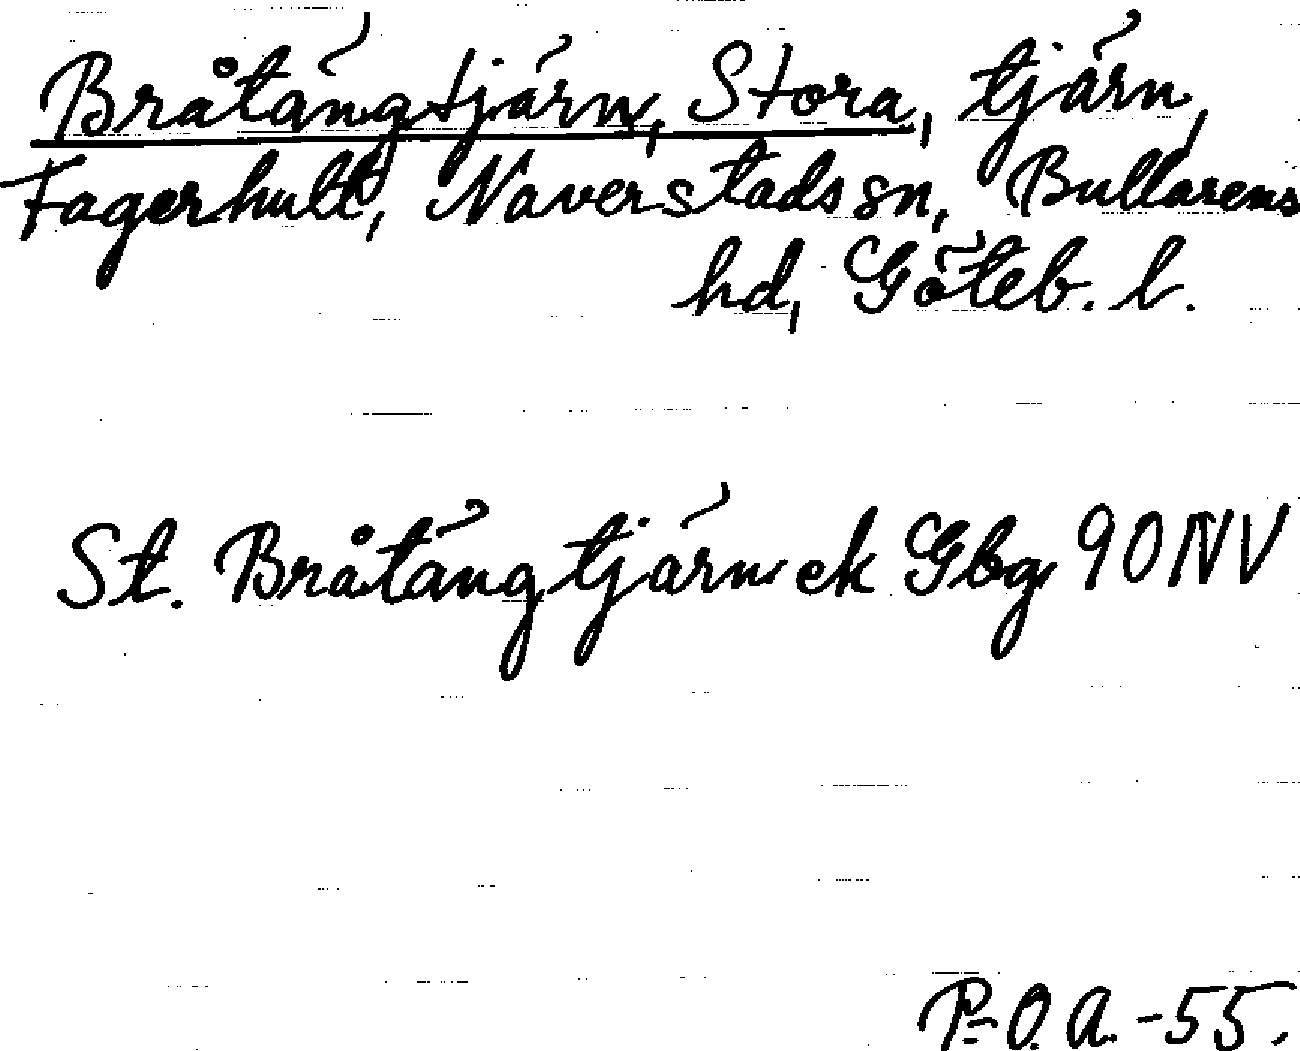 Bråtängtjärn, Stora, tjärn,
Fagerhult, Naverstads sn, Bullarens
hd, Göteb. l.
St. Bråtängtjärn ek Gbg 90 NV
P-O.A.-55.